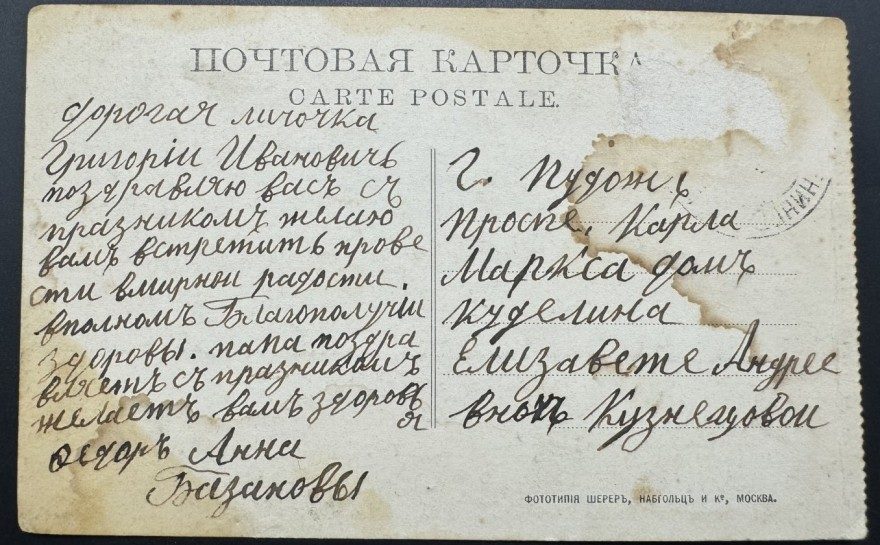 ПОЧТОВАЯ КАРТОЧКА
CARTE POSTALE.
дорогая личочка
Григоріи Ивановичъ
поздравляю васъ съ
празникомъ желаю
вамъ встретить прове
сти вмирнои радости
вполномъ Благополучіи
здоровы. папа поздра
вляетъ съ празникомъ
желаетъ вамъ здоровь
я
Ѳедоръ Анна
Базановы
г. Пудожъ
Проспе. Карла
Маркса домъ
Куделина
Елизавете Андрее
вной Кузнецовои
ФОТОТИПІЯ ШЕРЕРЪ, НАБГОЛЬЦЪ И К°, МОСКВА.